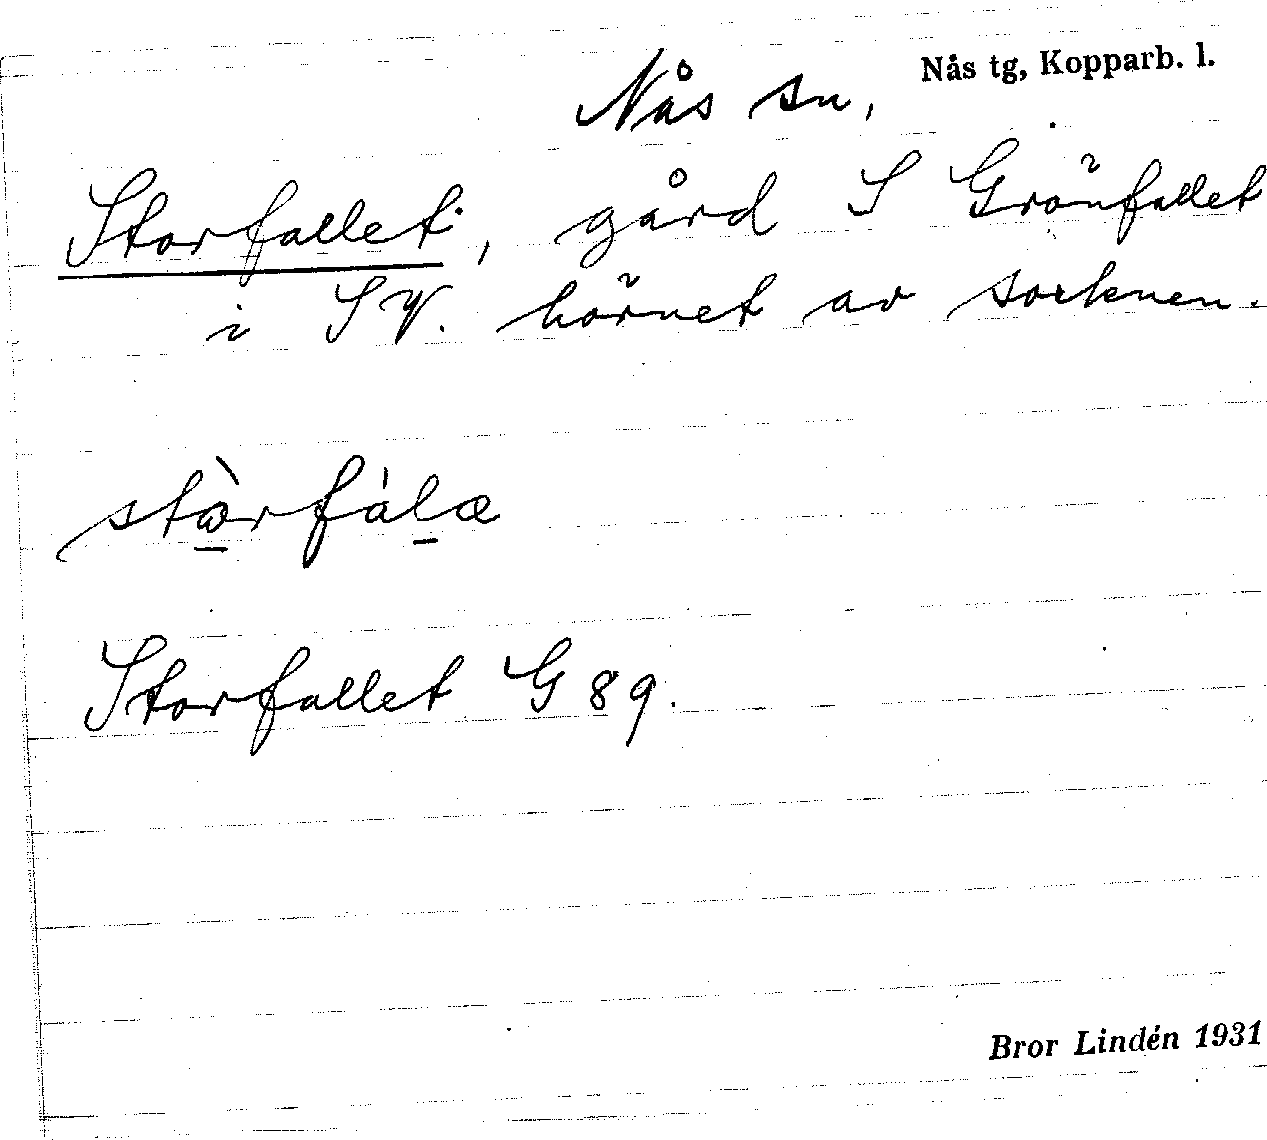 Nås tg, Kopparb. l.
Nås sn,
Storfallet, gård S Grönfallet
i SV. hörnet av socknen.
stòrfálæ
Storfallet G 89.
Bror Lindén 1931